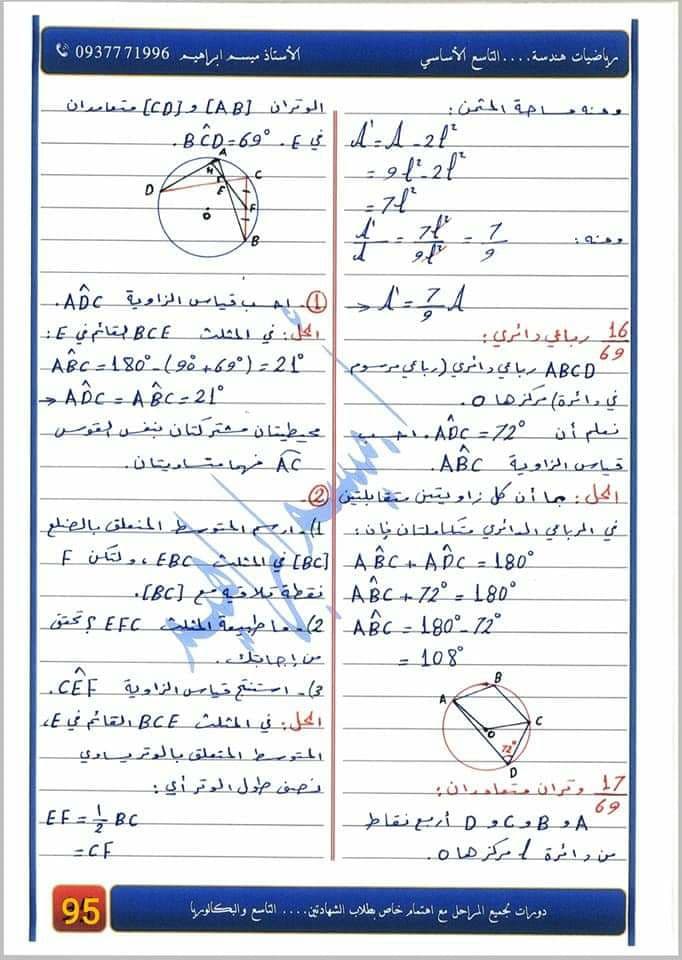 رياضيات هندسة....التاسع الأساسي
الأستاذ ميسم ابراهيم 0937771996
ومنه مساحة المثمن:
A' = A - 2l²
= 9l² - 2l²
= 7l²
ومنه: A'/A = 7l²/9l² = 7/9
→ A' = 7/9 A
16/69 رباعي دائري:
ABCD رباعي دائري (رباعي مرسوم
في دائرة) مركزها O.
نعلم أن ADC = 72°. احسب
قياس الزاوية ABC.
الحل: بما أن كل زاويتين متقابلتين
في الرباعي الدائري متكاملتان فإن:
ABC + ADC = 180°
ABC + 72° = 180°
ABC = 180° - 72°
= 108°
A B C O 72° D
17/69 وتران متعامدان:
A و B و C و D أربع نقاط
من دائرة مركزها O.
الوتران [AB] و [CD] متعامدان
في E. BCD = 69°
A H C D E F O B
① احسب قياس الزاوية ADC.
الحل: في المثلث BCE القائم في E:
ABC = 180° - (90 + 69°) = 21°
→ ADC = ABC = 21°
محيطيتان مشتركتان بنفس القوس
AC فهما متساويتان.
②
1). ارسم المتوسط المتعلق بالضلع
[BC] في المثلث EBC، ولتكن F
نقطة تلاقيه مع [BC].
2). ما طبيعة المثلث EFC؟ تحقق
من إجابتك.
3). استنتج قياس الزاوية CEF.
الحل: في المثلث BCE القائم في E،
المتوسط المتعلق بالوتر يساوي
نصف طول الوتر أي:
EF = 1/2 BC
= CF
دورات لجميع المراحل مع اهتمام خاص بطلاب الشهادتين.... التاسع والبكالوريا
95